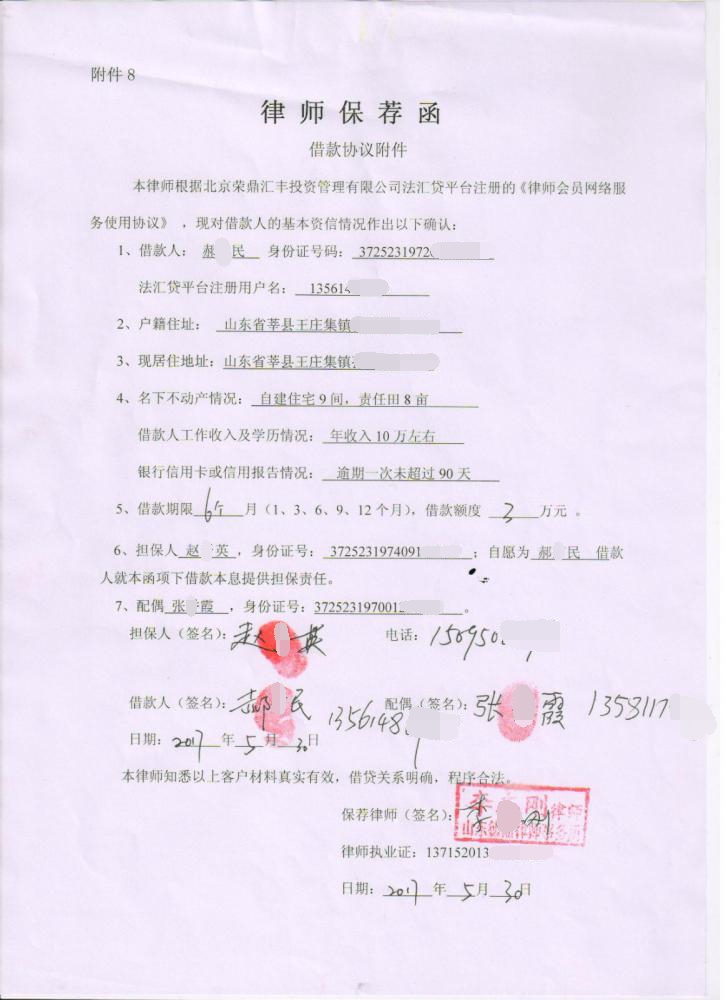 附件 8
律师保荐函
借款协议附件
本律师根据北京荣鼎汇丰投资管理有限公司法汇贷平台注册的《律师会员网络服
务使用协议》，现对借款人的基本资信情况作出以下确认：
1、借款人： 郝 民 身份证号码： 372523197
法汇贷平台注册用户名： 13561
2、户籍住址： 山东省莘县王庄集镇
3、现居住地址：山东省莘县王庄集镇
4、名下不动产情况： 自建住宅 9 间，责任田 8 亩
借款人工作收入及学历情况： 年收入 10 万左右
银行信用卡或信用报告情况： 逾期一次未超过 90 天
5、借款期限 6个 月（1、3、6、9、12 个月），借款额度 3 万元 。
6、担保人 赵 英 ，身份证号： 3725231974091 ；自愿为 郝 民 借款
人就本函项下借款本息提供担保责任。
7、配偶 张 霞 ，身份证号：37252319701 。
担保人（签名）：赵 英 电话：150950
借款人（签名）：郝 民 1356148 配偶（签名）：张 霞 1358117
日期：2017 年 5 月 30 日
本律师知悉以上客户材料真实有效，借贷关系明确，程序合法。
保荐律师（签名）： 刚 律师
律师执业证：137152013
日期：2017 年 5 月 30 日